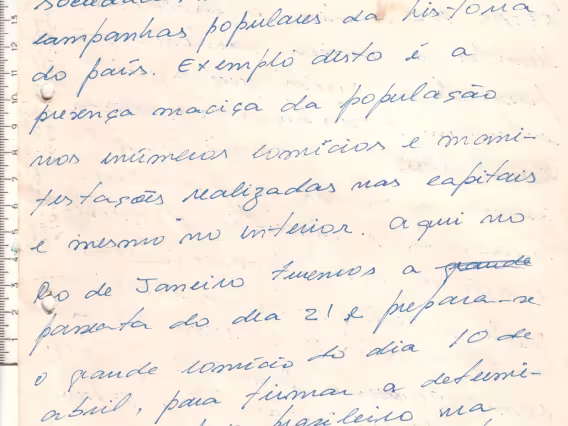 sociedade,
campanhas populares da história
do país. Exemplo disto é a
presença maciça da população
nos inúmeros comícios e mani-
festações realizadas nas capitais
e mesmo no interior. Aqui no
Rio de Janeiro tivemos a grande
passeata do dia 21 e prepara-se
o grande comício do dia 10 de
abril, para firmar a determi-
brasileiro na